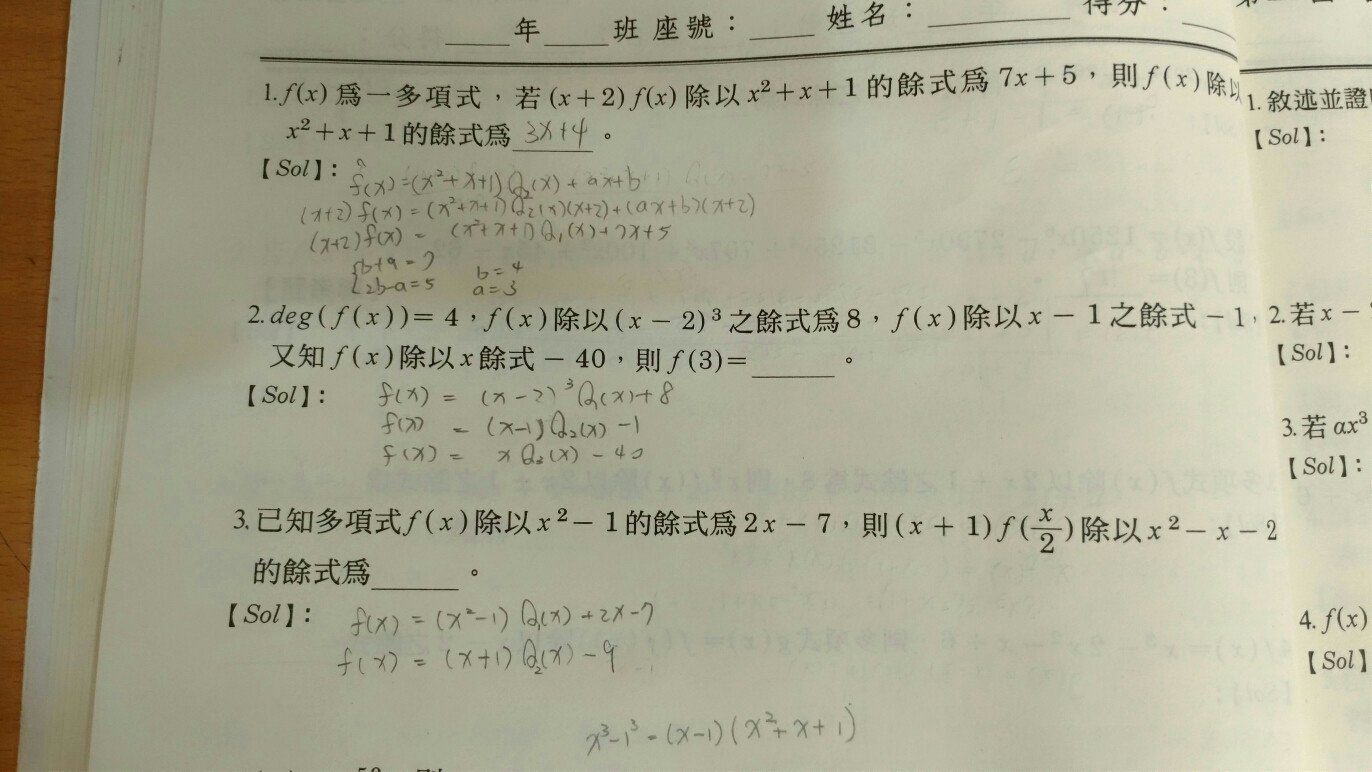 年 班 座號： 姓名： 得分：
1.f(x)爲一多項式，若(x+2)f(x)除以x²+x+1的餘式爲7x+5，則f(x)除以
x²+x+1的餘式爲 3x+4 。
【Sol】：
f(x)=(x²+x+1)Q₂(x)+ax+b
(x+2)f(x)=(x²+x+1)Q₂(x)(x+2)+(ax+b)(x+2)
(x+2)f(x) = (x²+x+1)Q₁(x)+7x+5
{b+a=7
{2b-a=5
b=4
a=3
2.deg(f(x))=4，f(x)除以(x-2)³之餘式爲8，f(x)除以x-1之餘式-1，
又知f(x)除以x餘式-40，則f(3)=______。
【Sol】：
f(x) = (x-2)³Q₁(x)+8
f(x) = (x-1)Q₂(x)-1
f(x) = xQ₃(x)-40
3.已知多項式f(x)除以x²-1的餘式爲2x-7，則(x+1)f(x/2)除以x²-x-2
的餘式爲______。
【Sol】：
f(x) = (x²-1)Q₁(x)+2x-7
f(x) = (x+1)Q₂(x)-9
x³-1³=(x-1)(x²+x+1)
1.敘述並證
【Sol】：
2.若x-
【Sol】：
3.若ax³
【Sol】：
4.f(x)
【Sol】